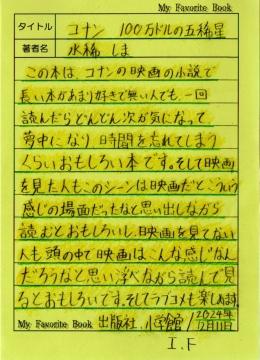 My Favorite Book
タイトル コナン 100万ドルの五稜星
著者名 水稀 しま
この本は、コナンの映画の小説で
長い本があまり好きで無い人でも、一回
読んだらどんどん次が気になって
夢中になり、時間を忘れてしまう
くらいおもしろい本です。そして映画
を見た人もこのシーンは映画だとこういう
感じの場面だったなと思い出しながら
読むとおもしろいし、映画を見てない
人も頭の中で映画はこんな感じなん
だろうなと思い浮べながら読んで見
るとおもしろいです。そしてラブコメも楽しめます。
My Favorite Book 出版社 小学館 / 2024年12月11日
I.F